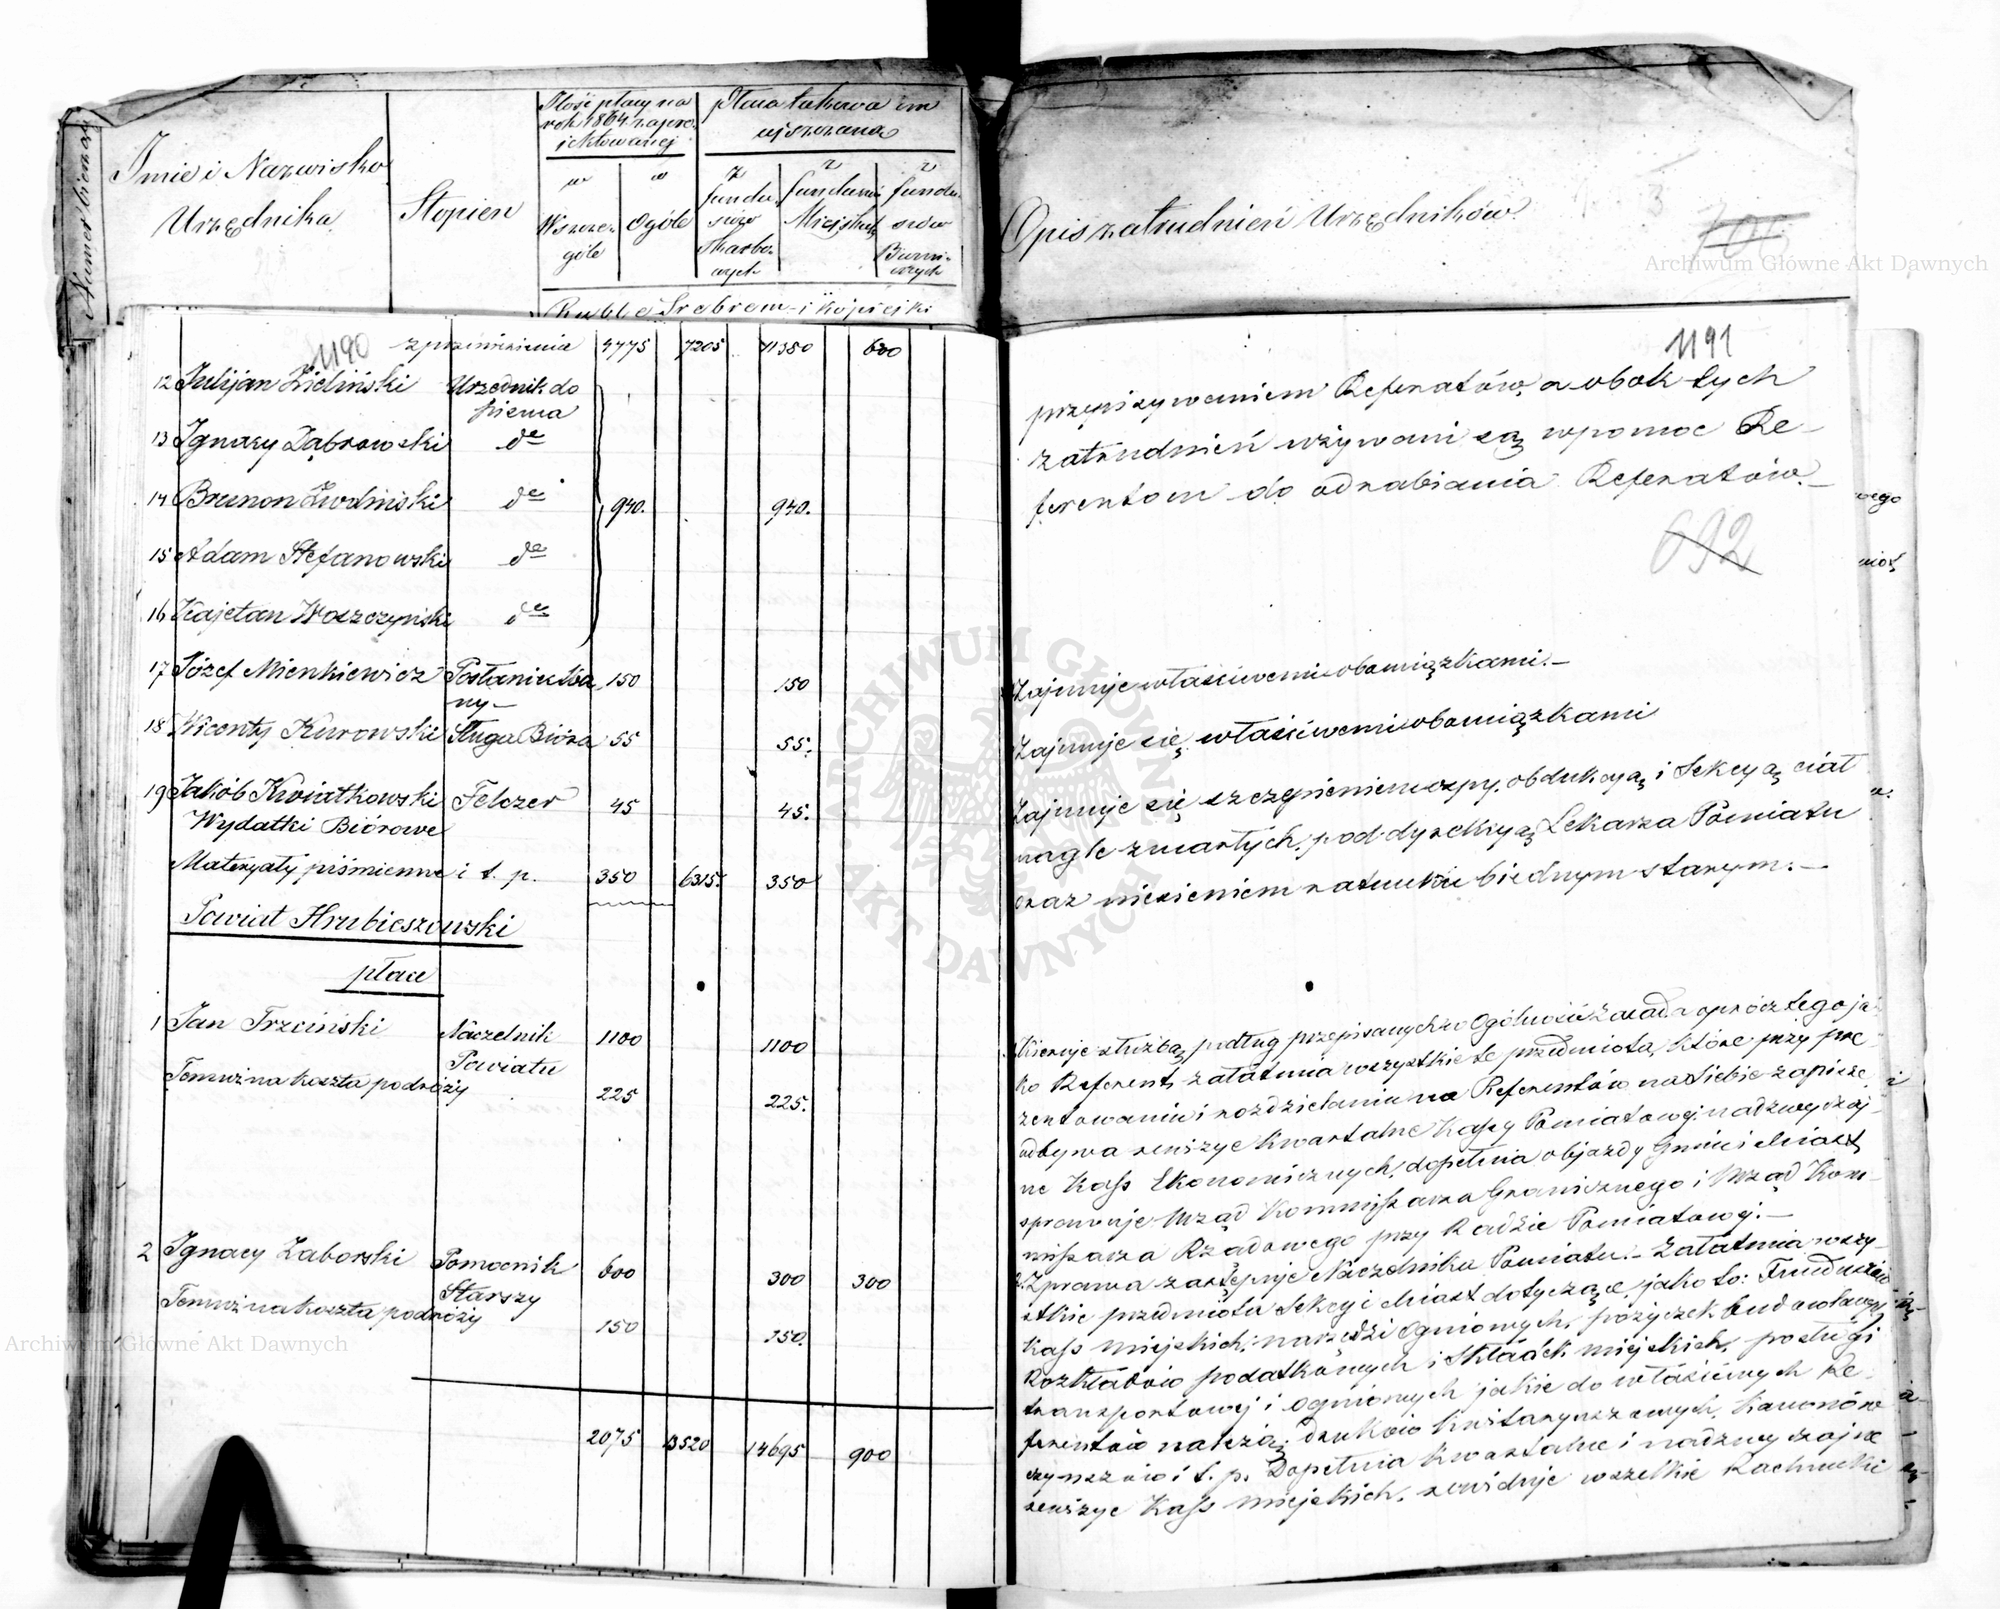 Numer bieżący
Imie i Nazwisko
Urzędnika
Stopien
Ilość płacy na
rok 1864 zapro-
jektowanej
w
Wszcze-
góle
w
Ogóle
płaca takowa im
wyszczana
z
fundu-
szów
Skarbo-
wych
z
funduszów
Miejskich
z
fundu-
szów
Rubble Srebrem i Kopiejki
Opis zatrudnień Urzędników.
3
106
Archiwum Główne Akt Dawnych
1190
z przeniesienia 4775 7205 11380 600
12 Julijan Zieliński Urzędnik do
pisma
13 Ignacy Dąbrowski de
14 Brunon de 940. 940.
15 Adam Stefanowski de
16 Kajetan Woszczyński de
17 Józef Mienkiewicz Posłaniec 150 150
ny
18 Wicenty Kurowski Sługa Bióra 55 55.
19 Jakób Kwiatkowski Felczer 45 45.
Wydatki Biórowe
Materyały piśmienne i t. p. 350 6315. 350
Powiat Hrubieszowski
płace
1 Jan Trzciński Naczelnik 1100 1100
Powiatu
Temuż na koszta podróży 225 225.
2 Ignacy Zaborski Pomocnik 600 300 300
Starszy
Temuż na koszta podróży 150 150.
2075 13520 14695 900
1191
przepisywaniem Referatów, a obok tych
zatrudnień używani są w pomoc Re-
ferentom do odrabiania Referatów.
692
Zajmuje właściwemi obowiązkami.
Zajmuje się właściwemi obowiązkami
Zajmuje się szczepieniem ospy, obdukcyą i Sekcyą ciał
nagle zmarłych, pod dyrekcyą Lekarza Powiatu
oraz niesieniem ratunku biednym starym.
Kieruje służbą podług przepisanych w Ogólności Zasad a oprócz tego ja-
ko Referent, załatwia wszystkie te przedmiota, które przy pre-
zentowaniu i rozdzielaniu na Referentów na siebie zapisze,
odbywa rewizye Kwartalne Kassy Powiatowej, nadzwyczaj-
ne Kass Ekonomicznych, dopełnia objazdy Gmin i Miast
sprawuje Urząd Kommissarza Granicznego i Urząd Kom-
missarza Rządowego przy Radzie Powiatowej.
2. Zprawa zastępuje Naczelnika Powiatu. Załatwia wszy-
stkie przedmiota Sekcyi Miast dotyczące, jako to: Funduszów
Kass Miejskich, narzędzi Ogniowych, pożyczek budowlanych
Rozkładów podatkowych i Składek miejskich, posługi
transportowej i ogniowych jakie do właściwych Re-
ferentów należą, druków kwitaryuszowych, Kanonów
czynszów i t. p. Dopełnia Kwartalne i nadzwyczajne
rewizye Kass miejskich, rewiduje wszelkie Rachunki
ARCHIWUM GŁÓWNE AKT DAWNYCH
Archiwum Główne Akt Dawnych